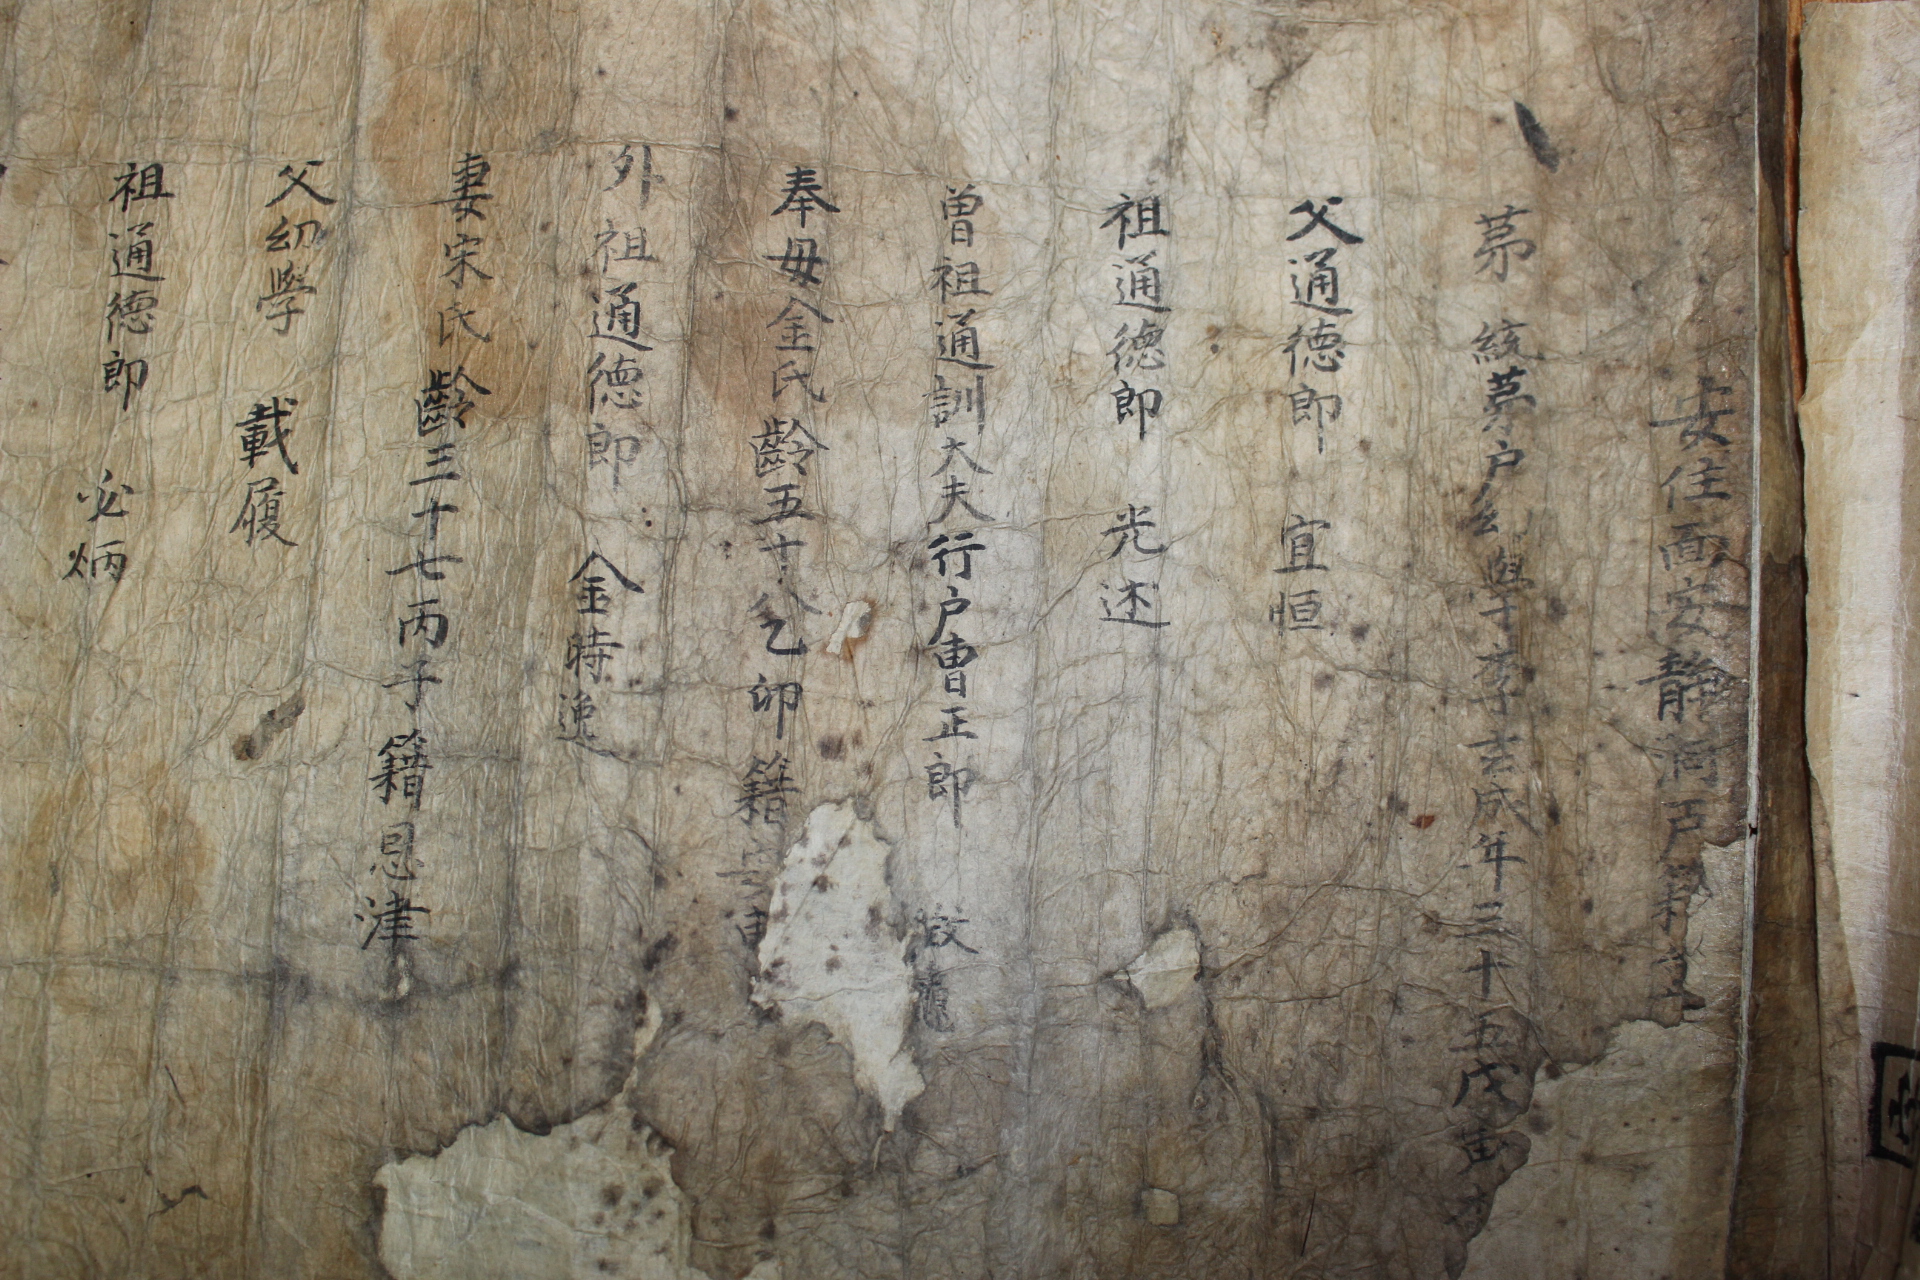 安住面安静洞戸籍
茅 統茅户幼學李 成年三十五戊寅
父通德郎 宜恒
祖通德郎 光述
曽祖通訓大夫行户曺正郎
奉母金氏齡五十 乙卯籍
外祖通德郎 金時逸
妻宋氏 齡三十七丙子籍恩津
父幼學 載履
祖通德郎 必炳